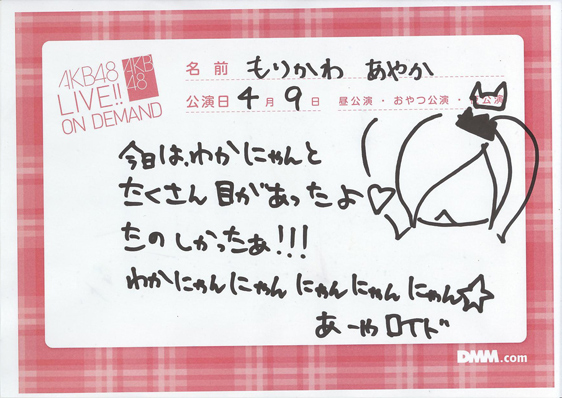 AKB48
LIVE!!
ON DEMAND
AKB
48
名前 もりかわ あやか
公演日 4月9日 昼公演・おやつ公演・夜公演
今日は、わかにゃんと
たくさん目があったよ♡
たのしかったあ!!!
わかにゃんにゃんにゃんにゃんにゃん☆
あーやロイド
DMM.com